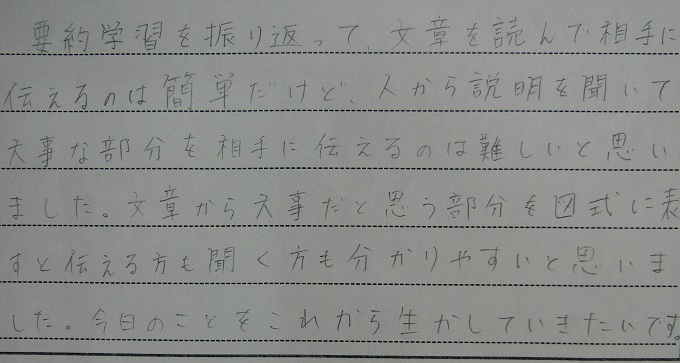 要約学習を振り返って、文章を読んで相手に
伝えるのは簡単だけど、人から説明を聞いて
大事な部分を相手に伝えるのは難しいと思い
ました。文章から大事だと思う部分を図式に表
すと伝える方も聞く方も分かりやすいと思いま
した。今日のことをこれから生かしていきたいです。